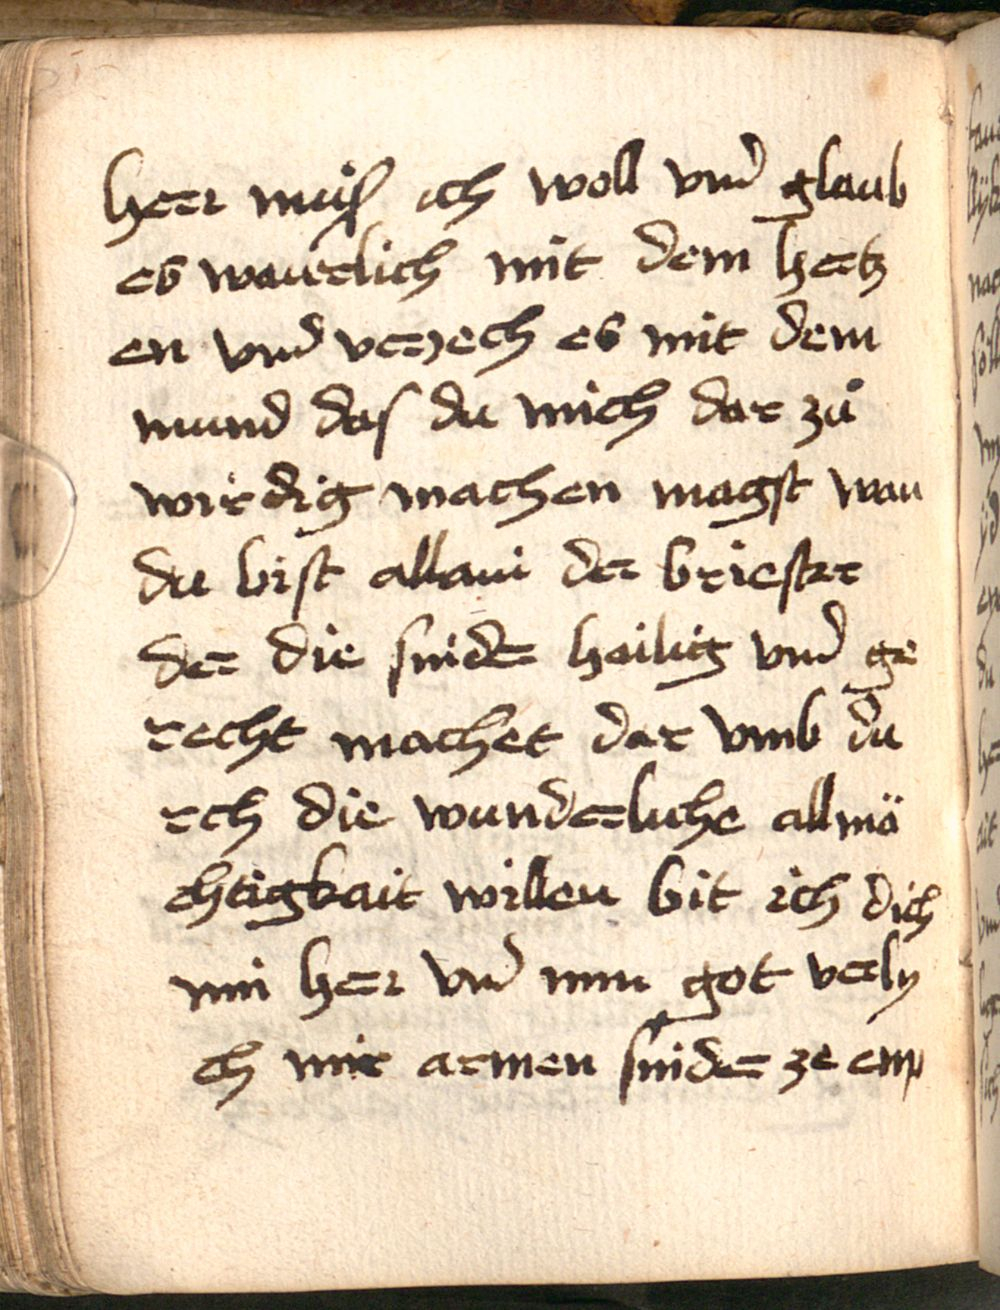 herr muiß ich woll vnd glaub
es wauerlich mit dem hertz
en vnd veriech es mit dem
mund das du mich dar zů
wirdig machen magst wan
du bist allain der briester
der die sinder hailig vnd ge
recht machet dar vmb du
rch die wunderliche allmä
chtigkait willen bit ich dich
min herr vnd min got verly
ch mir armen sinder ze emp